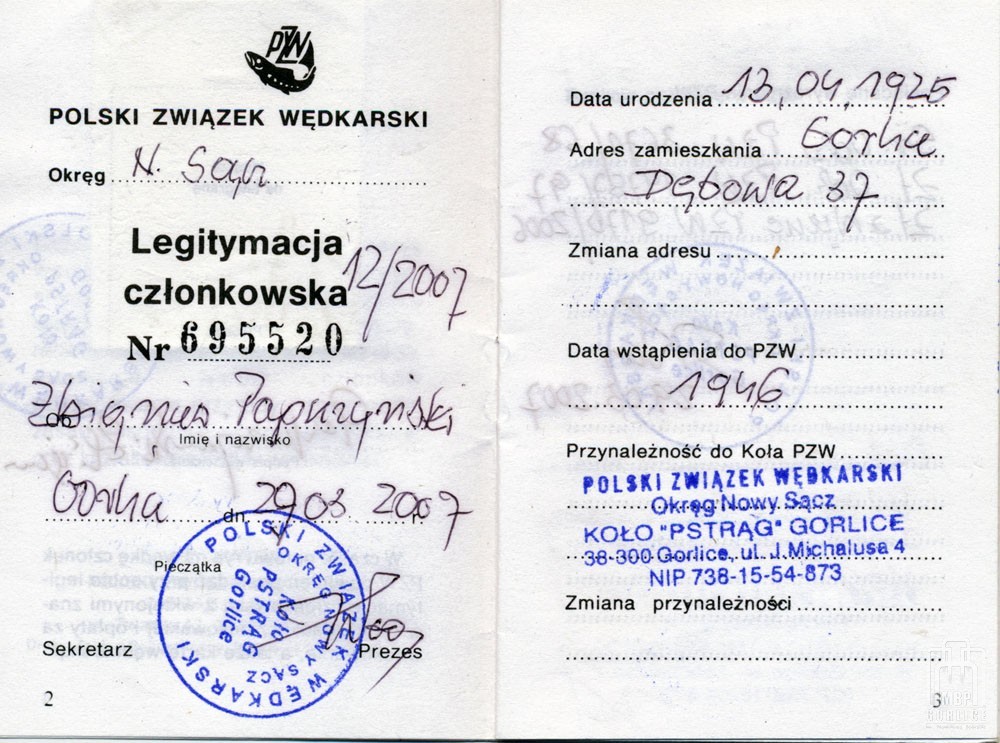 PZW
POLSKI ZWIĄZEK WĘDKARSKI
Okręg N. Sącz
Legitymacja
członkowska 12/2007
Nr 695520
ob. Zbigniew
Imię i nazwisko
Gorlice dn. 29 03 2007 r.
Pieczątka
POLSKI ZWIĄZEK WĘDKARSKI
OKRĘG NOWY SĄCZ
Koło
PSTRĄG
Gorlice
Sekretarz
Prezes
2
Data urodzenia 13,04,1925
Adres zamieszkania Gorlice
Dębowa 37
Zmiana adresu
Data wstąpienia do PZW
1946
Przynależność do Koła PZW
POLSKI ZWIĄZEK WĘDKARSKI
Okręg Nowy Sącz
KOŁO "PSTRĄG" GORLICE
38-300 Gorlice, ul. J.Michalusa 4
NIP 738-15-54-873
Zmiana przynależności
3